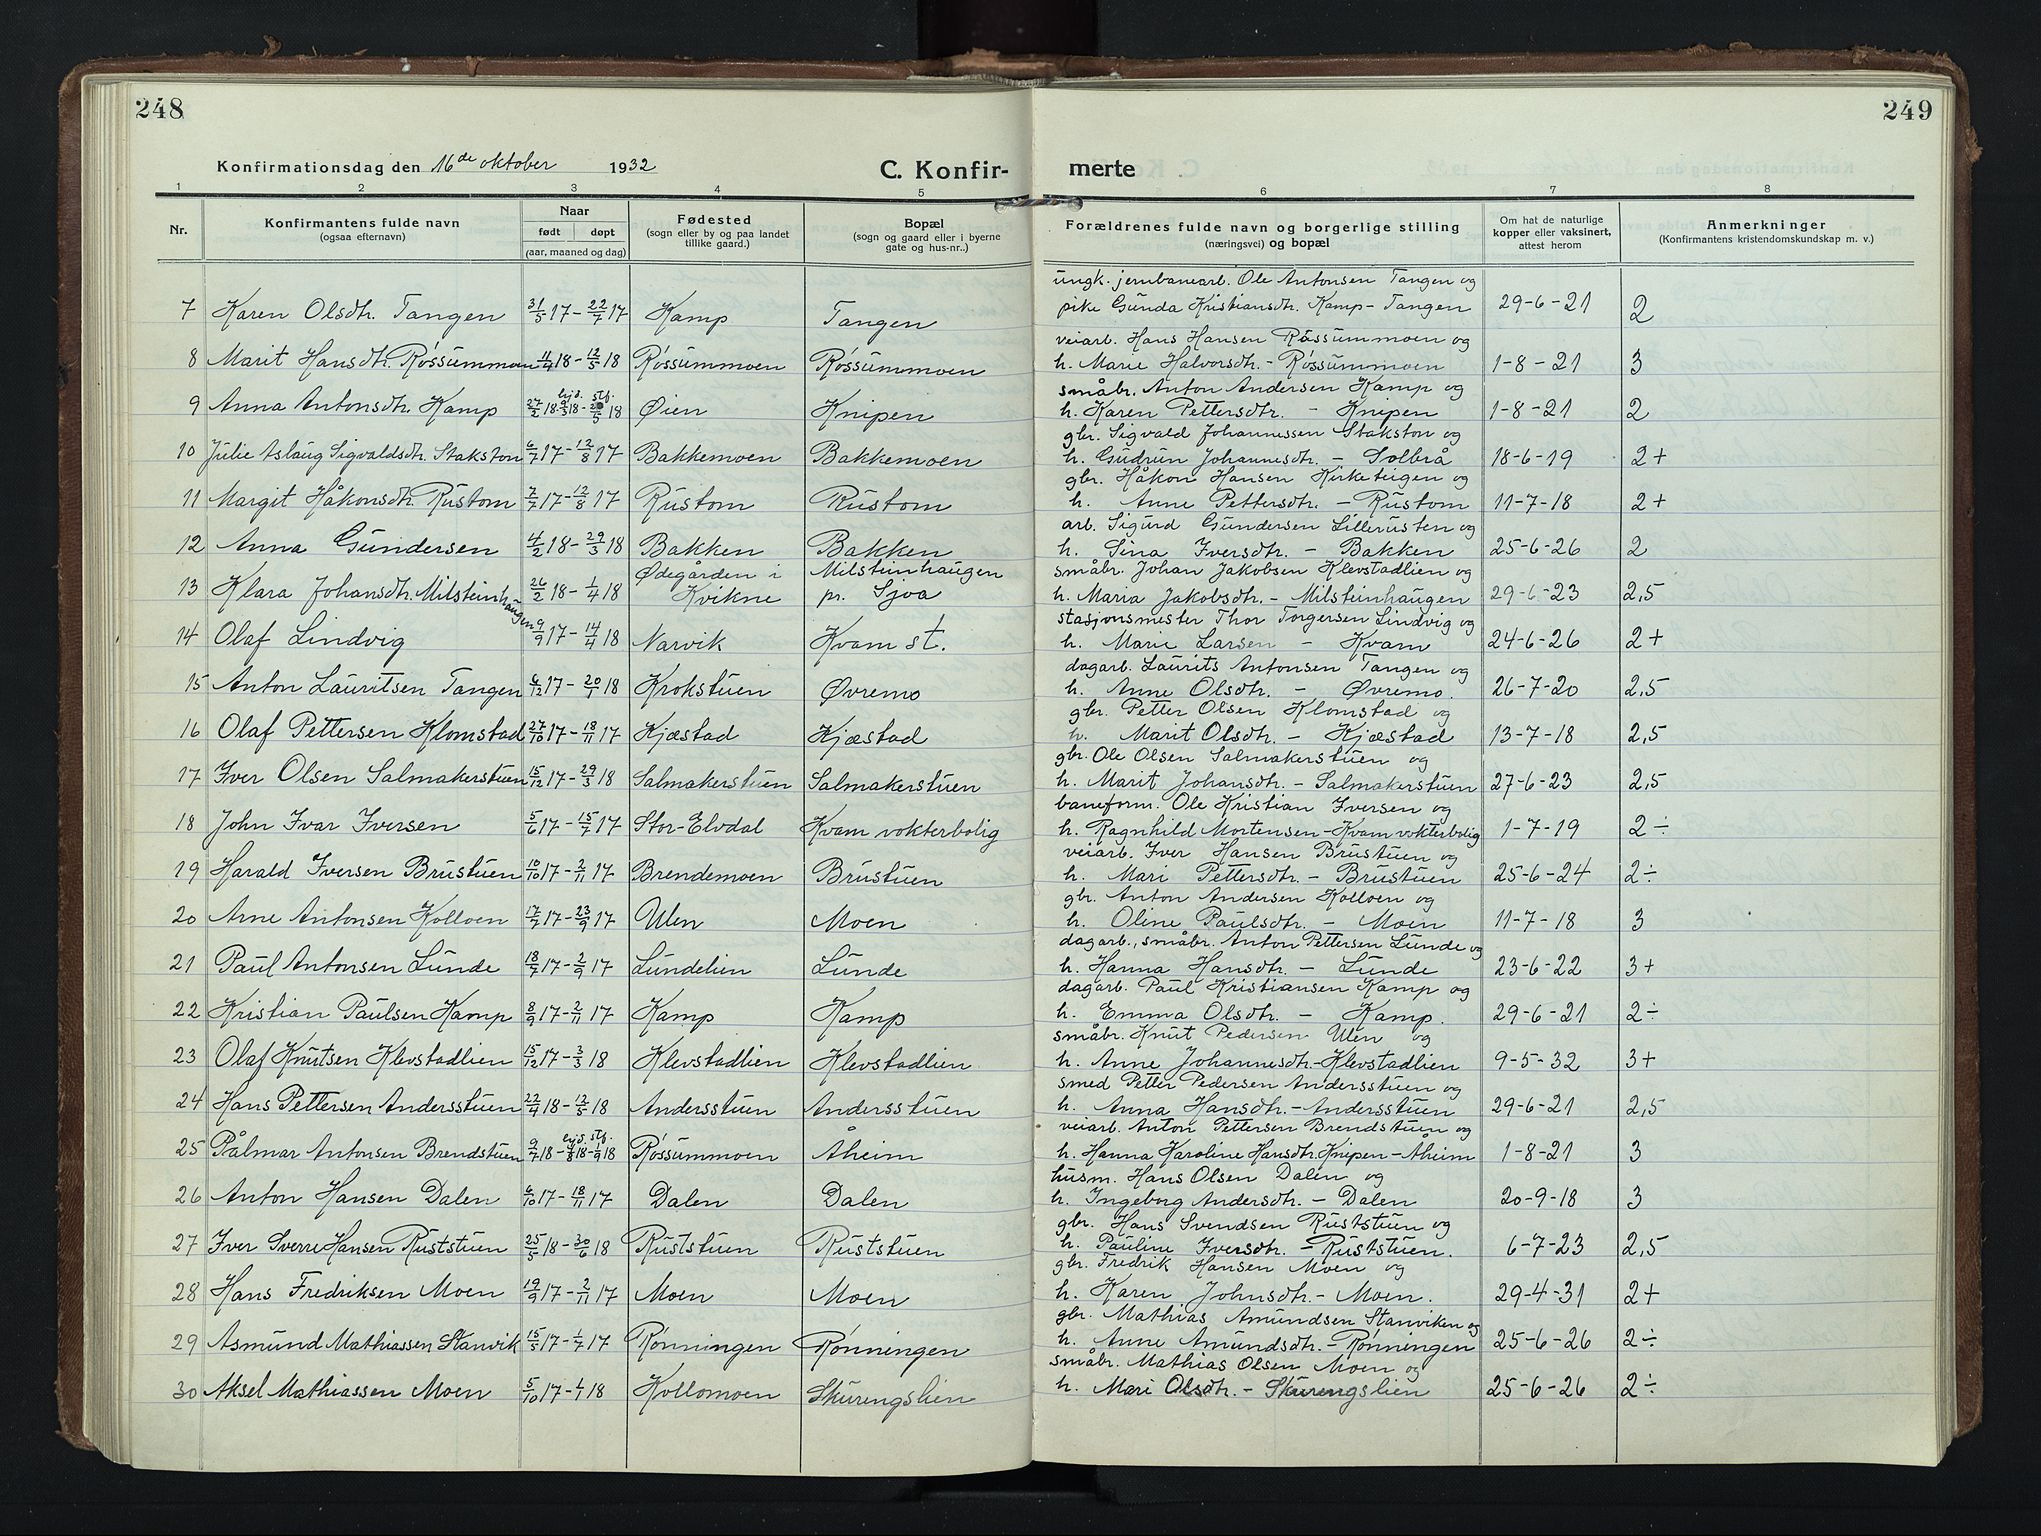 248
249
Konfirmationsdag den 16de oktober 1932
C. Konfir-
merte
1 2 3 4 5 6 7 8
Nr.
Konfirmantens fulde navn
(ogsaa efternavn)
Naar
født døpt
(aar, maaned og dag)
Fødested
(sogn eller by og paa landet
tillike gaard.)
Bopæl
(sogn og gaard eller i byerne
gate og hus-nr..)
Forældrenes fulde navn og borgerlige stilling
(næringsvei) og bopæl
Om hat de naturlige
kopper eller vaksinert,
attest herom
Anmerkninger
(Konfirmantens kristendomskundskap m. v.)
ungk. jernbanearb. Ole Antonsen Tangen og
7 Karen Olsdtr. Tangen 31/5 17 - 22/7 17 Kamp Tangen pike Gunda Kristiansdtr. Kamp - Tangen 29-6-21 2
veiarb. Hans Hansen Røssummoen og
8 Marit Hansdtr. Røssummoen 11/4 18 - 12/5 18 Røssummoen Røssummoen h. Marie Halvorsdtr. - Røssummoen 1-8-21 3
småbr. Anton Andersen Kamp og
9 Anna Antonsdtr. Kamp 27/2 18 hjd. stf. 18 Øien Knipen h. Karen Pettersdtr. - Knipen 1-8-21 2
gbr. Sigvald Johannessen Stakston og
10 Julie Aslaug Sigvaldsdtr. Stakston 6/7 17 - 12/8 17 Bakkemoen Bakkemoen h. Gudrun Johannesdtr. - Solbrå 18-6-19 2+
gbr. Håkon Hansen Kirketeigen og
11 Margit Håkonsdtr. Rustom 7/7 17 - 12/8 17 Rustom Rustom h. Anne Pettersdtr. - Rustom 11-7-18 2+
arb. Sigurd Gundersen Lillerusten og
12 Anna Gundersen 4/2 18 - 29/3 18 Bakken Bakken h. Sina Iversdtr. - Bakken 25-6-26 2
Ødegården i Milsteinhaugen småbr. Johan Jakobsen Klevstadlien og
13 Klara Johansdtr. Milsteinhaugen 26/2 18 - 1/4 18 Kvikne pr. Sjoa h. Maria Jakobsdtr. - Milsteinhaugen 29-6-23 2,5
stasjonsmester Thor Torgersen Lindvig og
14 Olaf Lindvig 9/9 17 - 14/4 18 Narvik Kvam st. h. Marie Larsen - Kvam 24-6-26 2+
dagarb. Laurits Antonsen Tangen og
15 Anton Lauritsen Tangen 6/12 17 - 20/1 18 Krokstuen Øvremo h. Anne Olsdtr. - Øvremo. 26-7-20 2,5
gbr. Petter Olsen Klomstad og
16 Olaf Pettersen Klomstad 27/10 17 - 18/11 17 Kjæstad Kjæstad h. Marit Olsdtr. - Kjæstad 13-7-18 2,5
gbr. Ole Olsen Salmakerstuen og
17 Iver Olsen Salmakerstuen 15/12 17 - 29/3 18 Salmakerstuen Salmakerstuen h. Marit Johansdtr. - Salmakerstuen 27-6-23 2,5
baneform. Ole Kristian Iversen og
18 John Ivar Iversen 5/6 17 - 15/7 17 Stor-Elvdal Kvam vokterbolig h. Ragnhild Mortensen - Kvam vokterbolig 1-7-19 2÷
veiarb. Iver Hansen Brustuen og
19 Harald Iversen Brustuen 10/10 17 - 2/11 17 Brendemoen Brustuen h. Mari Pettersdtr. - Brustuen 25-6-24 2÷
gbr. Anton Andersen Kolloen og
20 Arne Antonsen Kolloen 17/7 17 - 23/9 17 Ulen Moen h. Oline Paulsdtr. - Moen 11-7-18 3
dagarb., småbr. Anton Pettersen Lunde og
21 Paul Antonsen Lunde 18/7 17 - 2/9 17 Lundelien Lunde h. Hanna Hansdtr. - Lunde 23-6-22 3+
dagarb. Paul Kristiansen Kamp og
22 Kristian Paulsen Kamp 8/9 17 - 2/11 17 Kamp Kamp h. Emma Olsdtr. - Kamp. 29-6-21 2÷
småbr. Knut Pedersen Ulen og
23 Olaf Knutsen Klevstadlien 15/12 17 - 3/3 18 Klevstadlien Klevstadlien h. Anne Johannesdtr. - Klevstadlien 9-5-32 3+
smed Petter Pedersen Andersstuen og
24 Hans Pettersen Andersstuen 22/4 18 - 12/5 18 Andersstuen Andersstuen h. Anna Hansdtr. - Andersstuen 29-6-21 2,5
veiarb. Anton Pettersen Brendstuen og
25 Pålmar Antonsen Brendstuen 9/7 18 - hjd. stf. 1/9 18 Røssummoen Åheim h. Hanna Karoline Hansdtr. Knipen - Åheim 1-8-21 3
husm. Hans Olsen Dalen og
26 Anton Hansen Dalen 6/10 17 - 18/11 17 Dalen Dalen h. Ingeborg Andersdtr. - Dalen 20-9-18 3
gbr. Hans Svendsen Ruststuen og
27 Iver Sverre Hansen Ruststuen 25/5 18 - 30/6 18 Ruststuen Ruststuen h. Pauline Iversdtr. - Ruststuen. 6-7-23 2,5
gbr. Fredrik Hansen Moen og
28 Hans Fredriksen Moen 19/9 17 - 2/11 17 Moen Moen h. Karen Johnsdtr. - Moen. 29-4-31 2+
gbr. Mathias Amundsen Stanviken og
29 Asmund Mathiassen Stanvik 15/5 17 - 1/7 17 Rønningen Rønningen h. Anne Amundsdtr. - Rønningen 25-6-26 2÷
småbr. Mathias Olsen Moen og
30 Aksel Mathiassen Moen 5/10 17 - 1/1 18 Kollomoen Skurengslien h. Mari Olsdtr. - Skurengslien 25-6-26 2÷